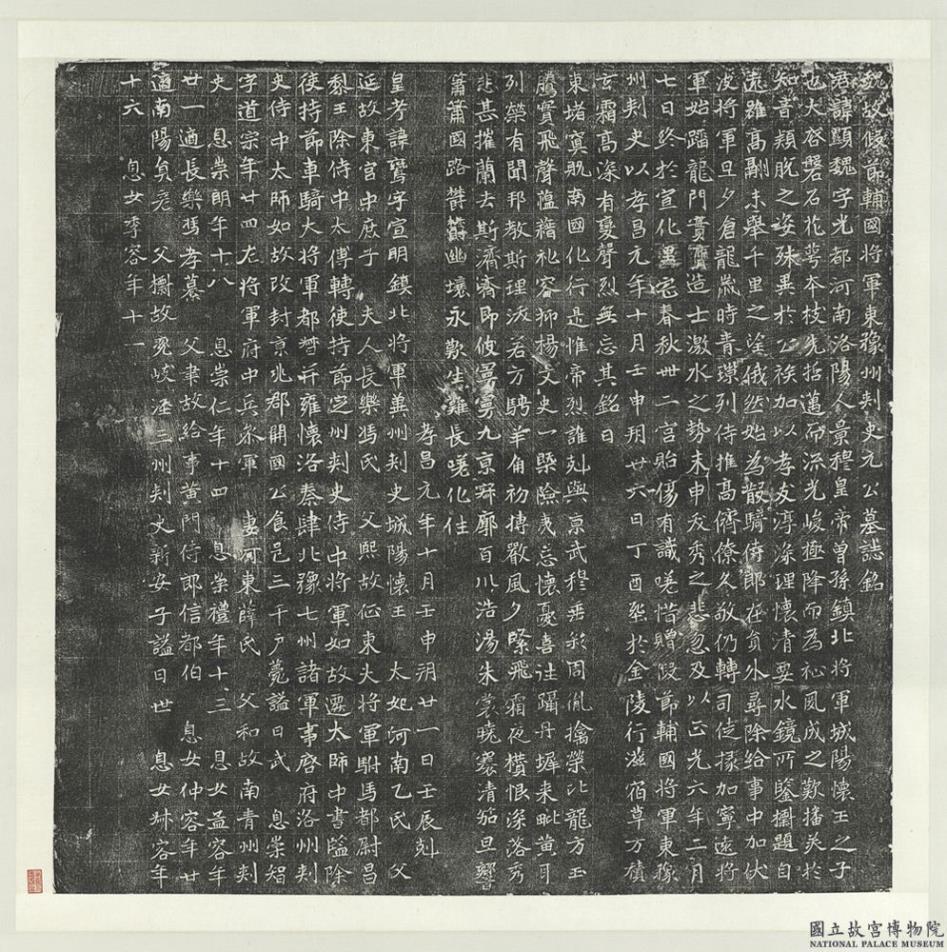 魏故假節輔國將軍東豫州刺史元公墓誌銘
君諱顯魏字光都河南洛陽人景穆皇帝曾孫鎮北將軍城陽懷王之子
也大啓磐石花萼本枝先哲邁而流光峻極降而為祉夙成之歎播美於
知音穎脫之姿殊異於公族加以孝友淳深理懷清要水鏡所鑒標題自
遠雖高翮未舉千里之望俄然始為散騎侍郎在負水尋除給事中加伏
波將軍旦夕倉龍歲時青璅列侍推高儕僚久敬仍轉司徒掾加寧遠將
軍始蹈龍門實賓造士激水之勢未申友秀之悲忽及以正光六年二月
七日終於宣化里宅春秋卌二言貽傷有識嗟惜贈假節輔國將軍東豫
州刺史以孝昌元年十月壬申朔廿六日丁酉葬於金陵行滋宿草方積
玄霜高深有變聲烈無忘其銘曰
東堵寔貺南國化行是惟帝烈誰剋與京武穆垂祉周胤擒榮比龍方玉
騰實飛聲蘊藉禮容抑揚文史一槩險夷忘懷憂喜註躡丹墀来毗黃耳
列樂有聞邦教斯理泼若方騁羊角初摶歡風夕緊飛霜夜積恨深落秀
悲甚摧蘭去斯濟濟即彼冥冥九京寂廓百川浩湯朱裳曉褰清笳旦響
蕭蕭國路欝欝幽壤永歎生難長嗟化往
孝昌元年十月壬申朔廿一日壬辰刻
皇考諱鸞字宣明鎮北將軍冀州刺史城陽懷王 太妃河南乙氏 父
延故東宮中庶子 夫人長樂馮氏 父熙故征東大將軍駙馬都尉昌
黎王除侍中太傅轉使持節定州刺史侍中將軍如故遷太師中書監除
使持節車騎大將軍都督并雍懷洛秦肆北豫七州諸軍事啓府洛州刺
史侍中太師如故改封京兆郡開國公食邑三千戶薨謚曰武 息崇智
字道宗年廿四左將軍府中兵參軍 妻河東薛氏 父和故南青州刺
史 息崇朗年十八 息崇仁年十四 息崇禮年十三 息女孟容年
廿一適長樂馮孝纂 父聿故給事黃門侍郎信都伯 息女仲容年廿
適南陽負彥 父標故兗岐涇三州刺史新安子謚曰世 息女叔容年
十六 息女季容年十一
國立故宮博物院
NATIONAL PALACE MUSEUM